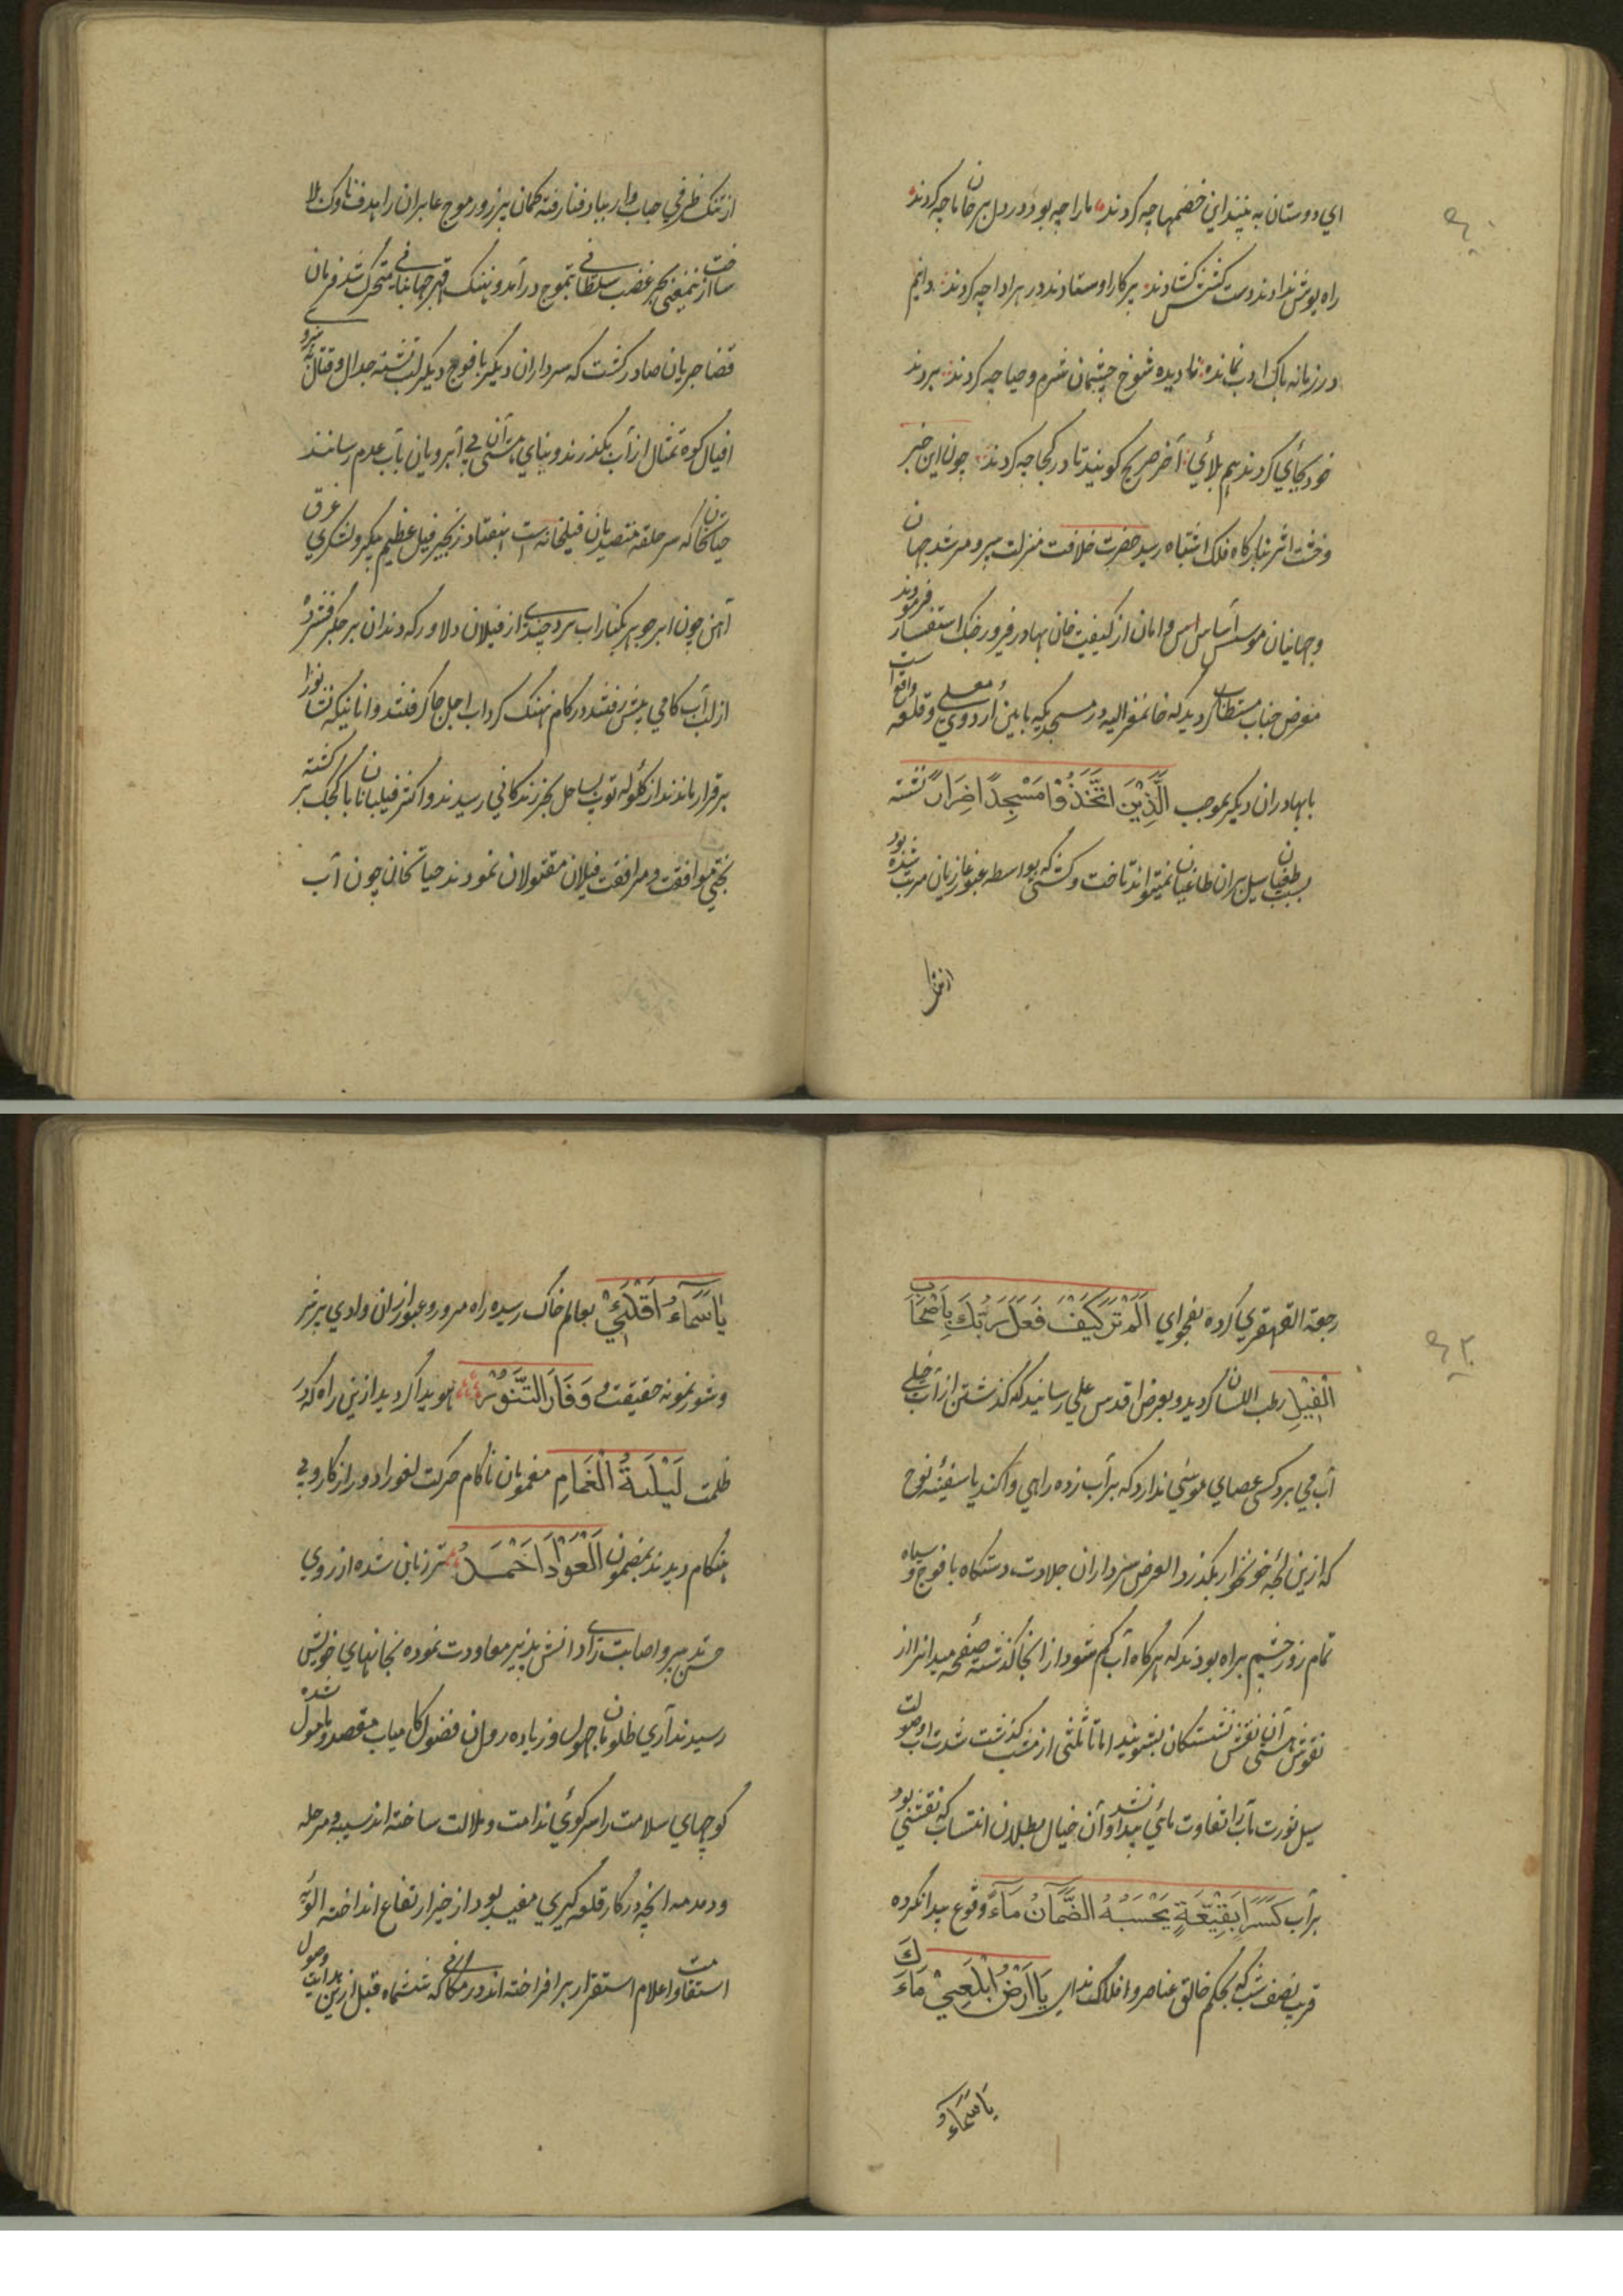 اي دوستان به بينيد اين خصمها چه كردند ما را چه بود در دل بر خان ما چه كردند
راه يورش ندادند دست كشش كشادند بر كار اوستادند در هر ادا چه كردند دانم
در زمانه باك ادب نمانده ناديده شوخ چشمان شرم و حيا چه كردند بردند
خود بجائي كردند هم بلائي آخر صريح كوئيد تا در كجا چه كردند چون اين خبر
وحشت اثر ببارگاه فلك اشتباه رسيد حضرت خلافت منزلت پير و مرشد جهان
و جهانيان موسس اساس امن و امان از كيفيت خان بهادر فيروز جنك استفسار فرمودند
معروض جناب مستطاب كرديد كه خان مغر اليه در مسجديكه مابين اردوي معلى و قلعه واقع است
با بهادران ديكر بموجب الَّذِيْنَ اتَّخَذُوْا مَسْجِدًا ضِرَارً نشسته
بسبب طغيان سيل بران طاغيان نميتواند تاخت و كشتي كه بواسطه عبور غازيان مرتب شده بود
از تنك
از تنك ظرفي حباب وار بباد فنا رفته كمان پر زور موج عابران را هدف ناوك بلا
ساخت ازينمعني بحر غضب سلطاني بتموج درآمد و نهنك قهر جهانباني متحرك شد فرمان
قضا جريان صادر كشت كه سرداران ديكر با فوج ديكر لب تشنه جدال و قتال به نيروي
افيال كوه تمثال از آب بكذرند و بناي هستي آن بي آبرويان بآب عدم رسانند
حياتخان كه سر حلقه متصديان فيلخانه است بهفتاد زنجير فيل عظيم پيكر و لشكري غرق
آهن چون ابر جوهر بكنار آب برد چندي از فيلان دلاور كه دندان بر جكر فشرده
از لب آب كامي پيش رفتند در كام نهنك كرداب اجل جا كرفتند و انانيكه
برقرار ماندند از كلوله توپ بساحل بحر زندكاني رسيدند و اكثر فيلبانان با كجك بر كشته
بختي موافقت و مرافقت فيلان مقتولان نمودند حياتخان چون آب
رجعة القهقري كرده بفحواي اَلَمْ تَرَ كَيْفَ فَعَلَ رَبُّكَ بِاَصْحَابِ
الْفِيْلِ رطب اللسان كرديد و بعرض اقدس علي رسانيد كه كذشتن از آب خيلي
آب مي برد كسي عصاي موسي ندارد كه بر آب زده راهي وا كند يا سفينه نوح
كه ازين لجه خونخوار بكذرد العرض سرداران جلادت دستكاه با فوج و سپاه
تمام روز چشم براه بودند كه هركاه آب كم شود از انجا كذشته صفحه ميدانرا از
نقوش هستي آن نقش نشستكان بشويند اما تا ثلثي از شب كذشت شدت آب و صولت
سيل فورت تاب را تفاوت مائي پيدا نشد و آن خيال بطلان انتساب كه نقشي بود
بر آب كَسَرَابٍ بِقِيْعَةٍ يَحْسَبُهُ الضَّمْاٰنُ مَآءً وقوع پيدا نكرده
قريب نصف شب كه بحكم خالق عناصر و افلاك نداي يَا اَرْضُ ابْلَعِيْ مَاءَكِ
يَا سَمَاءُ و
يَا سَمَاءُ اَقْلِعِيْ بعالم خاك رسيده راه مرور و عبور ازان وادي پر شر
و شور نمونه حقيقت وَفَارَ التَّنُّوْرُ هويدا كرديد ازين راه كه در
ظلمت لَيْلَةُ الْغَمَامِ مغمومان ناكام حركت لغو را دور از كار و بي
هنكام ديدند بمضمون اَلْعَوْدُ اَحْمَدُ مترزباني شده از روي
حسن تدبير و اصابت راي دانش پذير معاودت نموده بخانهاي خويش
رسيدند آري ظلومان جهول و زياده روان فضول كامياب مقصد و مامول شده
كوچهاي سلامت را سركوي ندامت و ملالت ساخته اند سيبه و مرحله
و دمدمه انچه در كار قلعه كيري مفيد بود از خيز ارتفاع انداخته الويه
استقامت و اعلام استقرار بر افراخته اند در مكاني كه ششماه قبل ازين